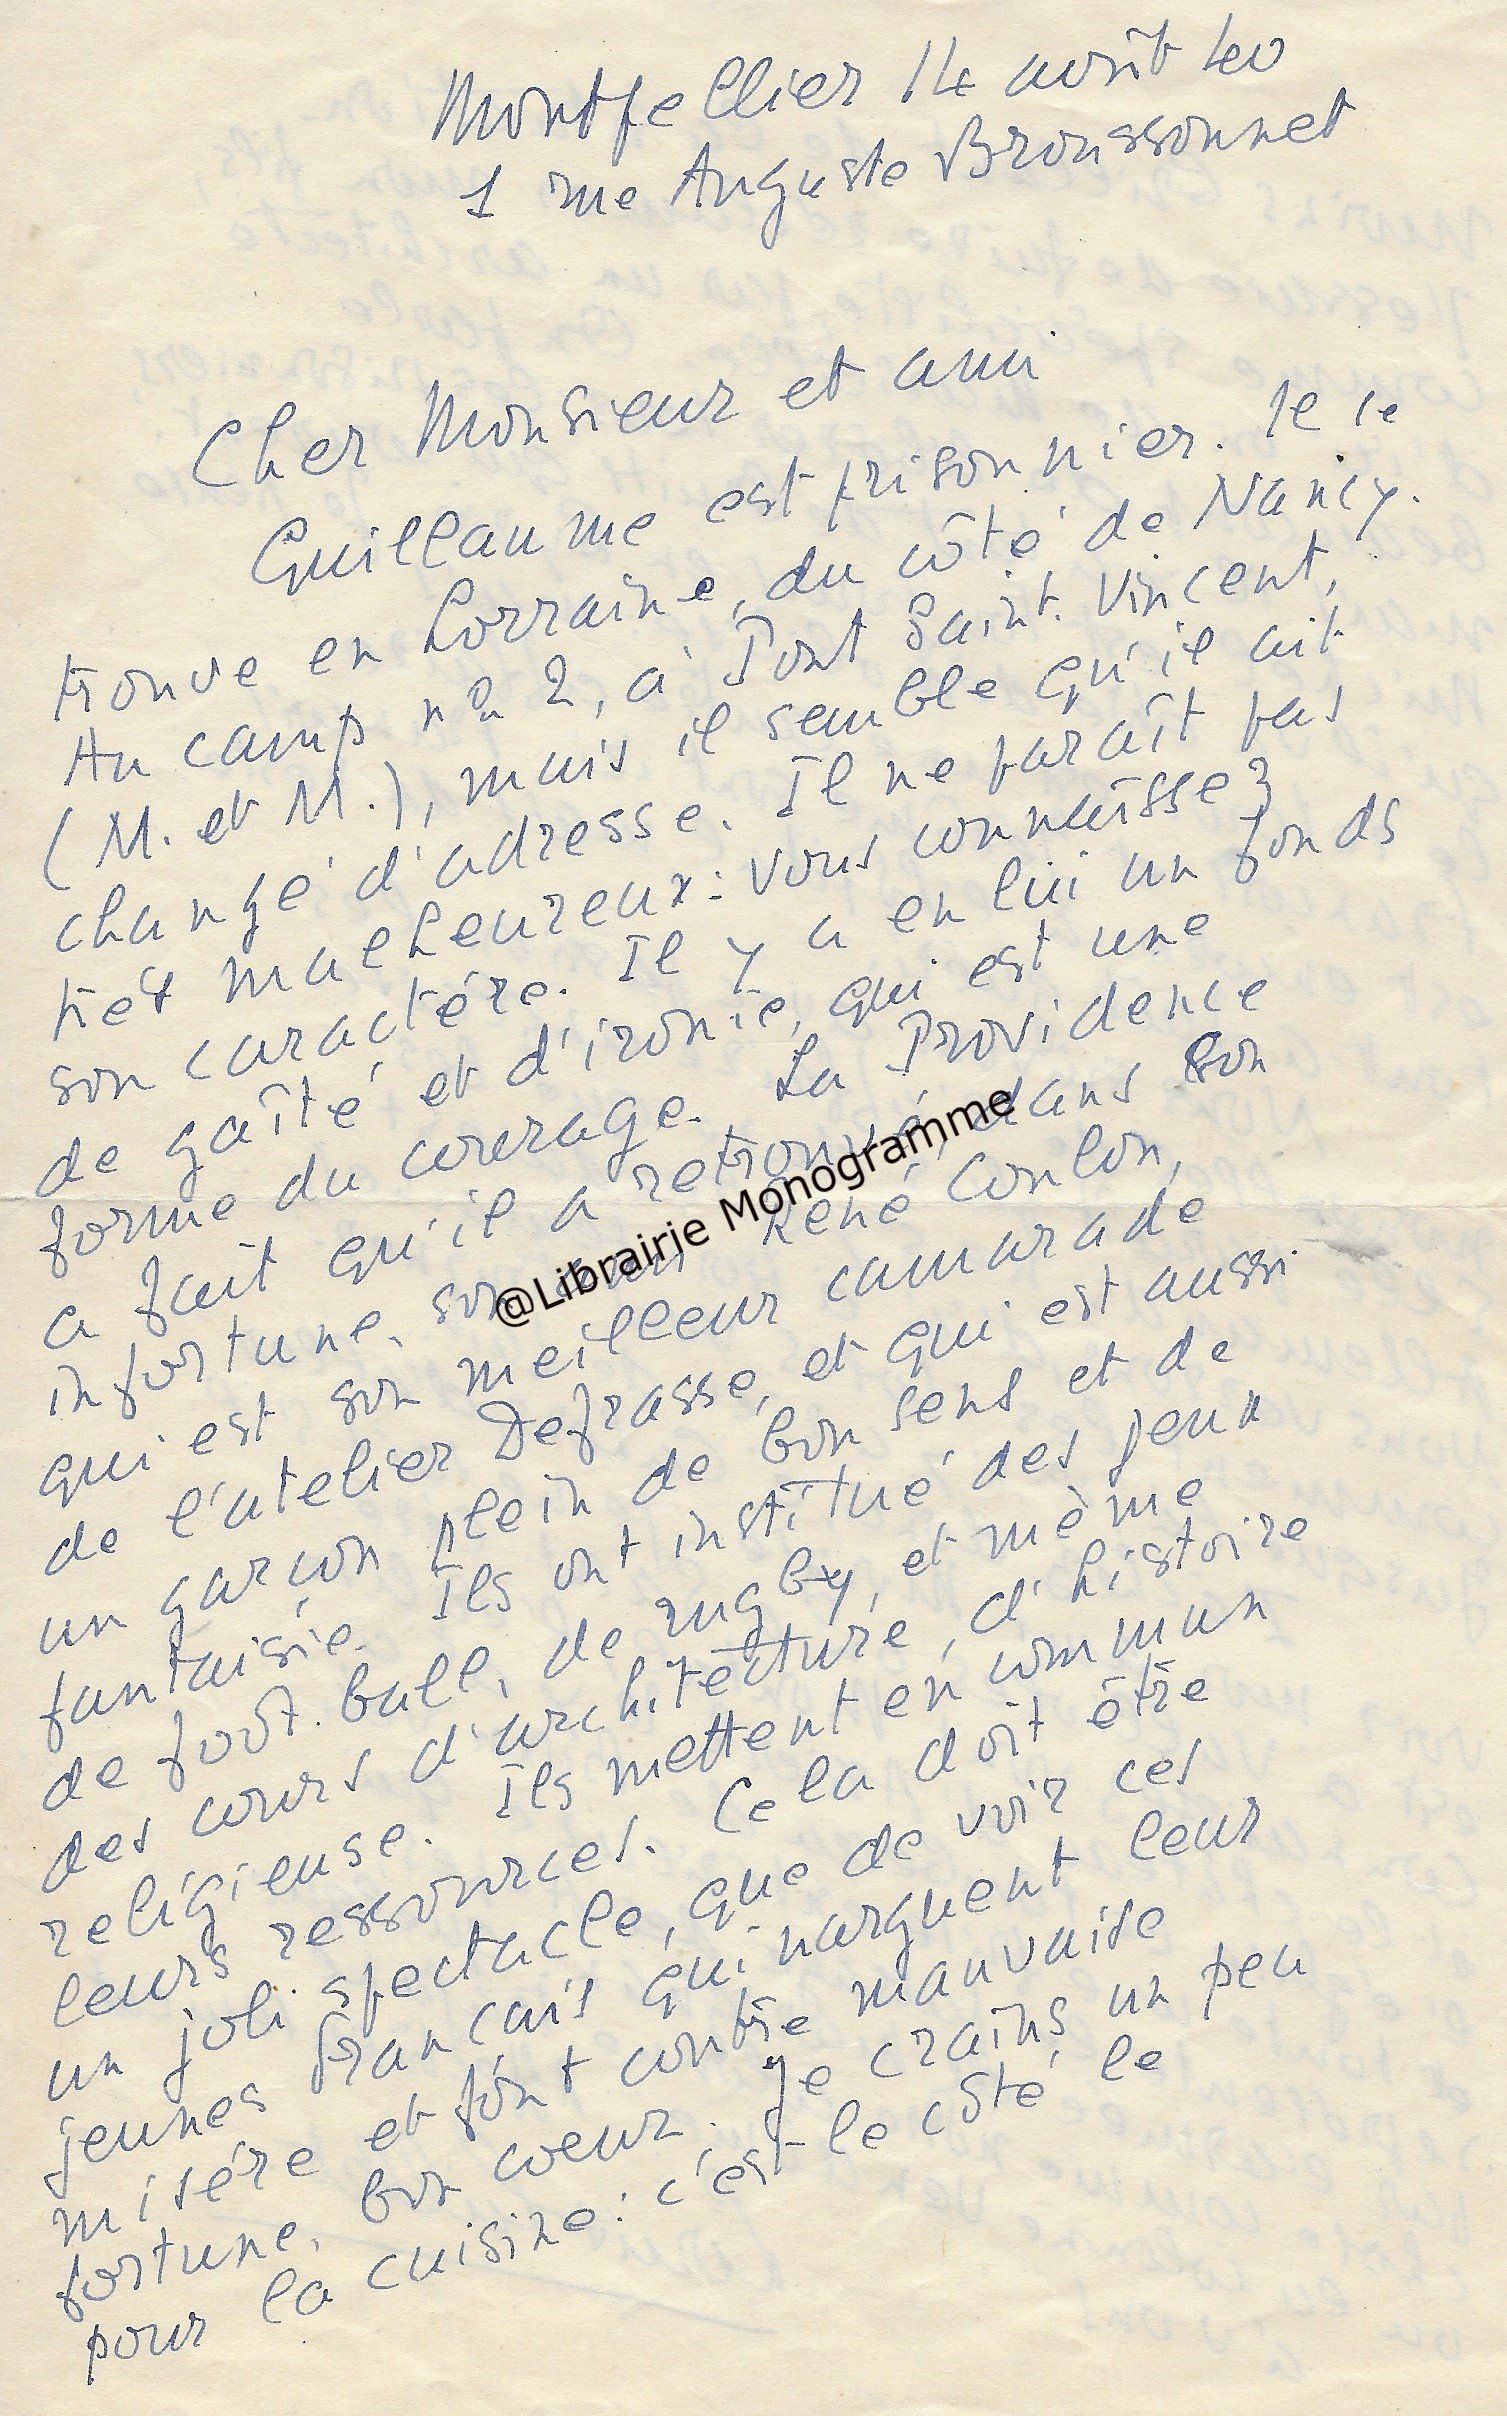 Montpellier 14 août 40
1 rue Auguste Broussonnet
Cher Monsieur et ami
Guillaume est prisonnier. Il se
trouve en Lorraine, du côté de Nancy.
Au camp n° 2, à Pont Saint. Vincent,
(M. et M.), mais il semble qu'il ait
changé d'adresse. Il ne paraît pas
très malheureux: vous connaissez
son caractère. Il y a en lui un fonds
de gaîté et d'ironie, qui est une
forme du courage. La Providence
a fait qu'il a retrouvé, dans son
infortune, son ami René Coulon,
qui est son meilleur camarade
de l'atelier Defrasse, et qui est aussi
un garçon plein de bon sens et de
fantaisie. Ils ont institué des jeux
de foot. ball, de rugby, et même
des cours d'architecture, d'histoire
religieuse. Ils mettent en commun
leurs ressources. Cela doit être
un joli spectacle, que de voir ces
jeunes français qui narguent leur
misère et font contre mauvaise
fortune, bon coeur. Je crains un peu
pour la cuisine: c'est le côté le
@Librairie Monogramme